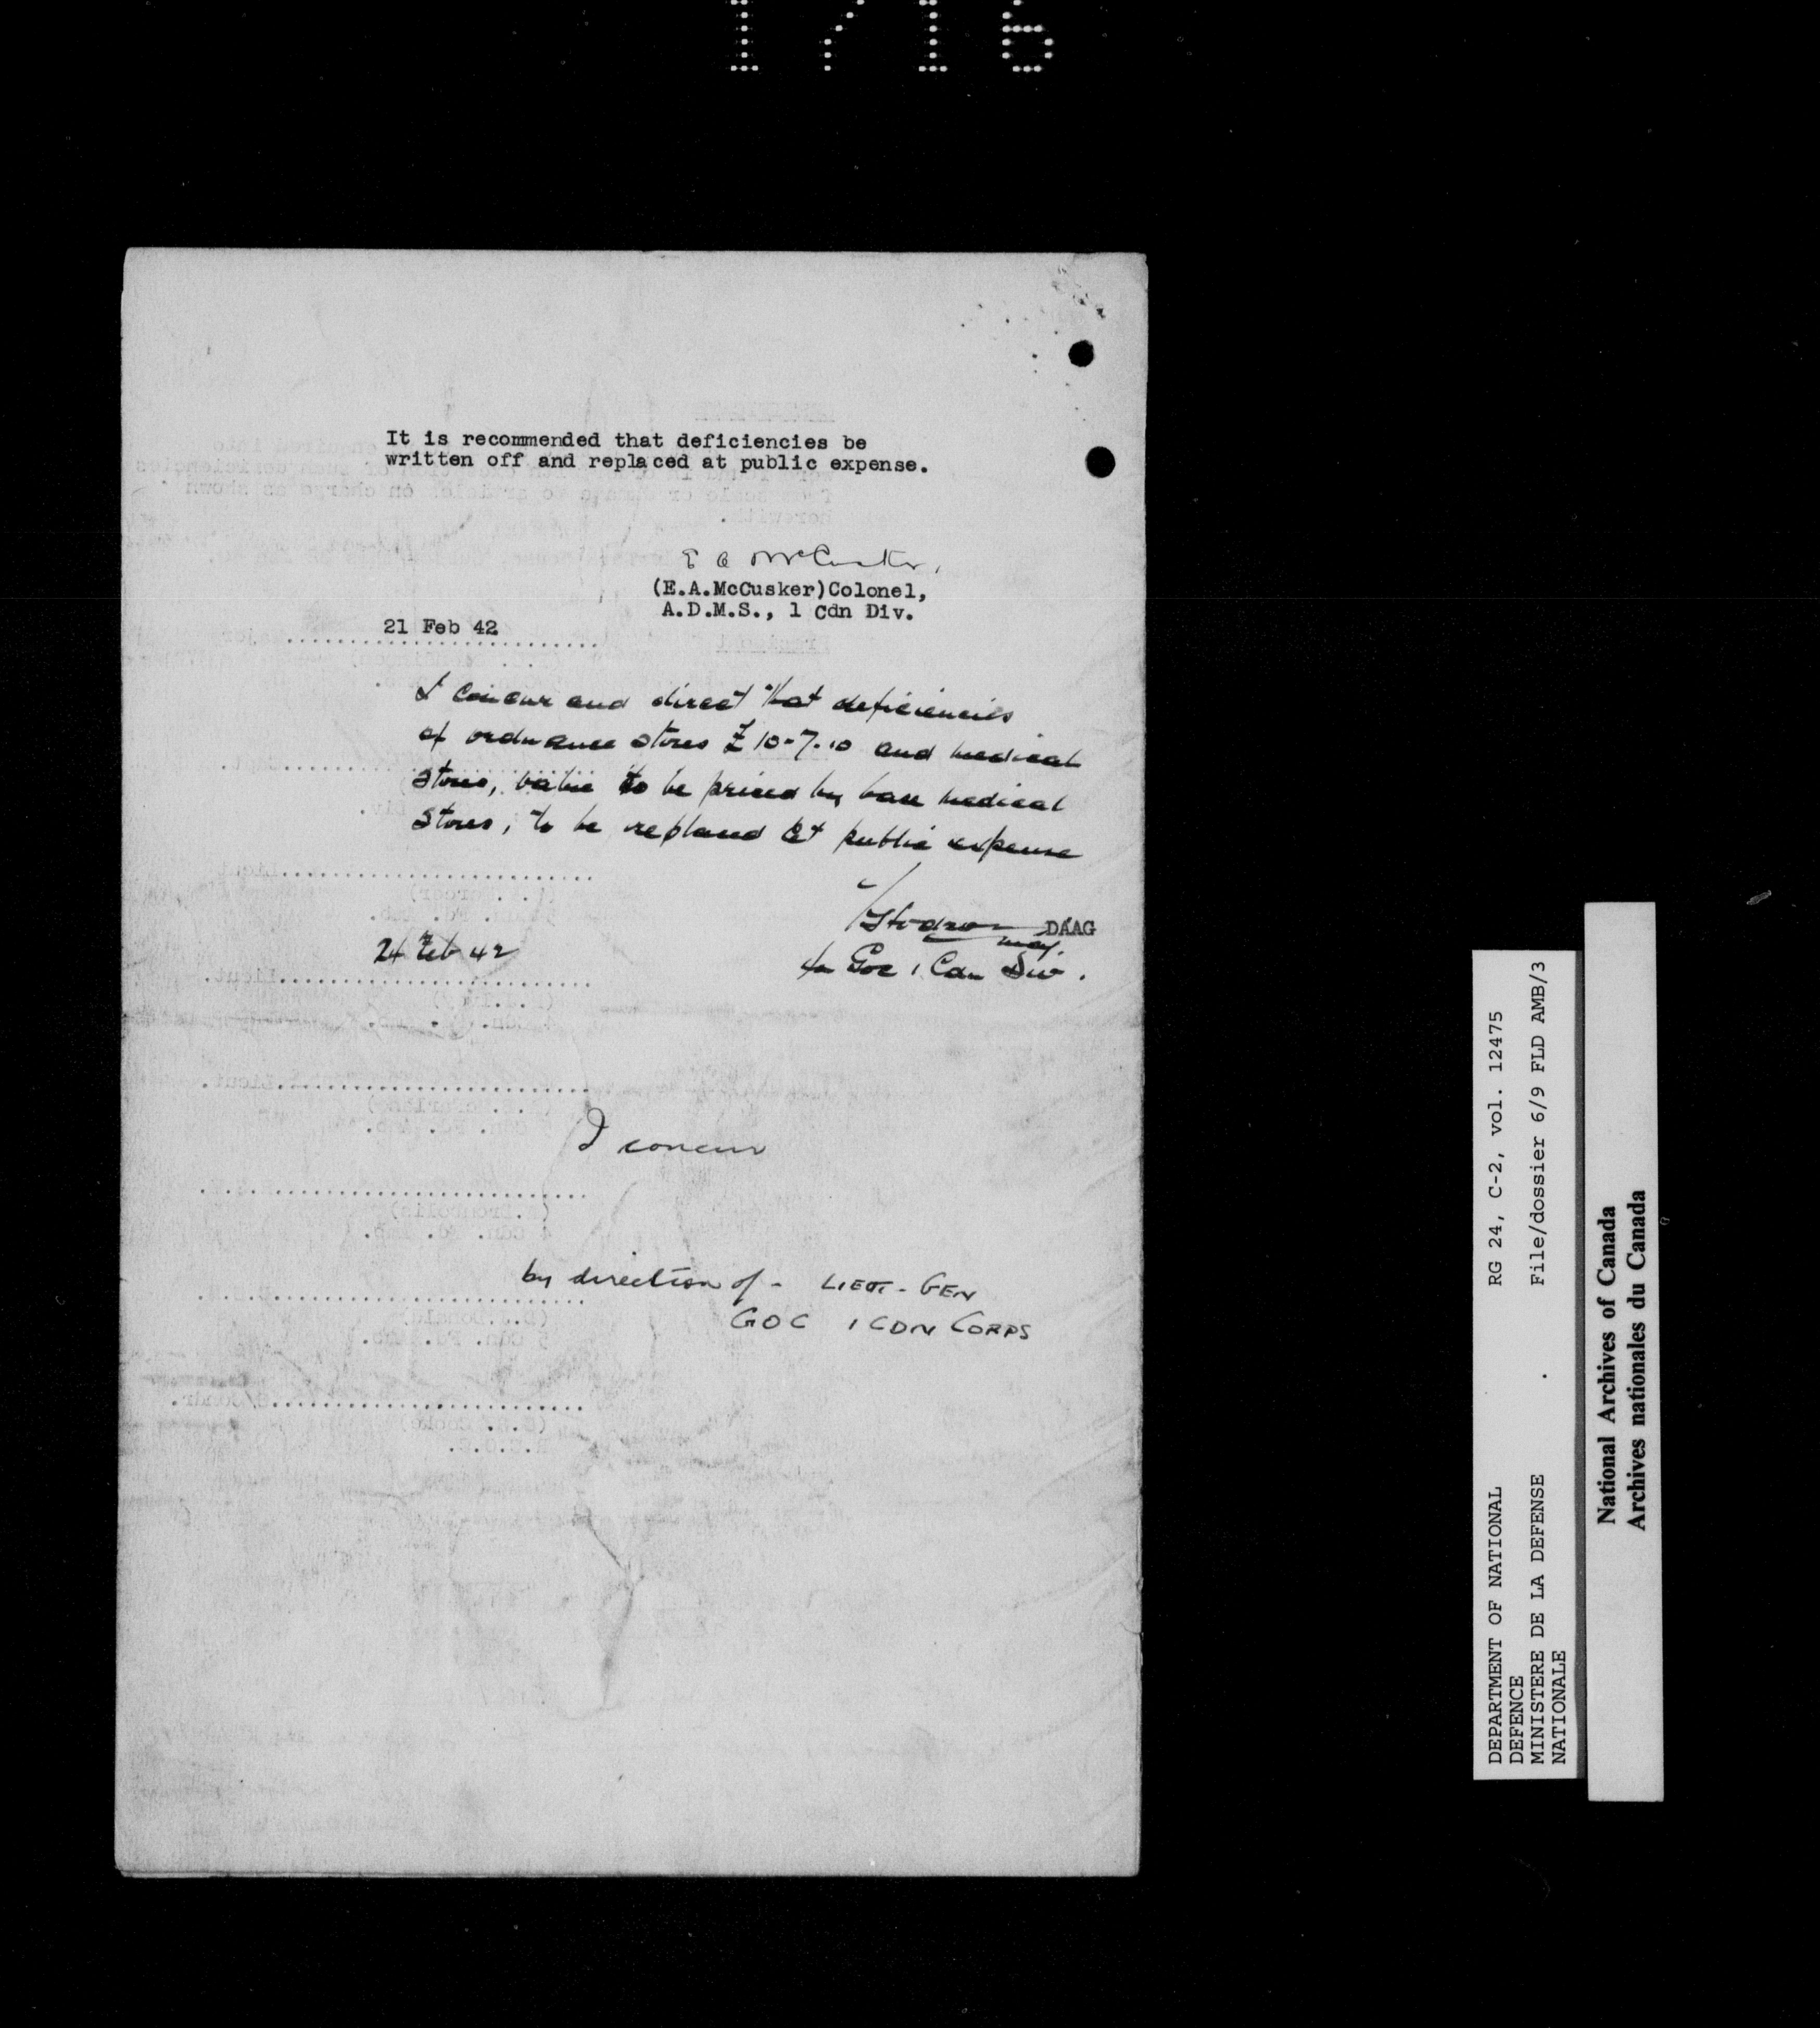 1716
It is recommended that deficiencies be
written off and replaced at public expense.
E A McCusker,
(E.A.McCusker)Colonel,
A.D.M.S., 1 Cdn Div.
21 Feb 42
I concur and direct that deficiencies
of ordnance stores £10-7-10 and medical
stores, value to be priced by base medical
stores, to be replaced at public expense
DAAG
Maj.
24 Feb 42
for GOC 1 Cdn Div.
I concur
by direction of - LIEUT-GEN
GOC 1 CDN CORPS
DEPARTMENT OF NATIONAL
DEFENCE
MINISTERE DE LA DEFENSE
NATIONALE
RG 24, C-2, vol. 12475
File/dossier 6/9 FLD AMB/3
National Archives of Canada
Archives nationales du Canada